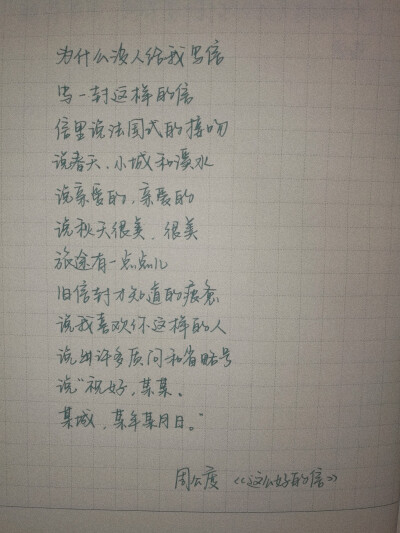 为什么没人给我写信
写一封这样的信
信里说法国式的接吻
说春天、小城和溪水
说亲爱的,亲爱的
说秋天很美、很美
旅途有一点点儿
旧信封才知道的疲惫
说我喜欢你这样的人
说出许多质问和省略号
说“祝好,某某、
某城,某年某月日。”
周公度 《这么好的信》